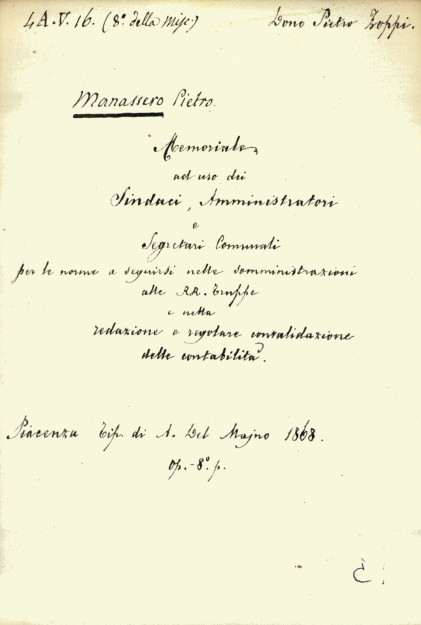 4A.V.16. (8.° della misc.) Dono Pietro Zoppi.
Manassero Pietro.
Memoriale
ad uso dei
Sindaci, Amministratori
e
Segretari Comunali
per le norme a seguirsi nelle somministrazioni
alle RR. Truppe
e nella
redazione e regolare convalidazione
delle contabilità.
Piacenza Tip. di A. Del Majno 1868.
op.-8.° p.